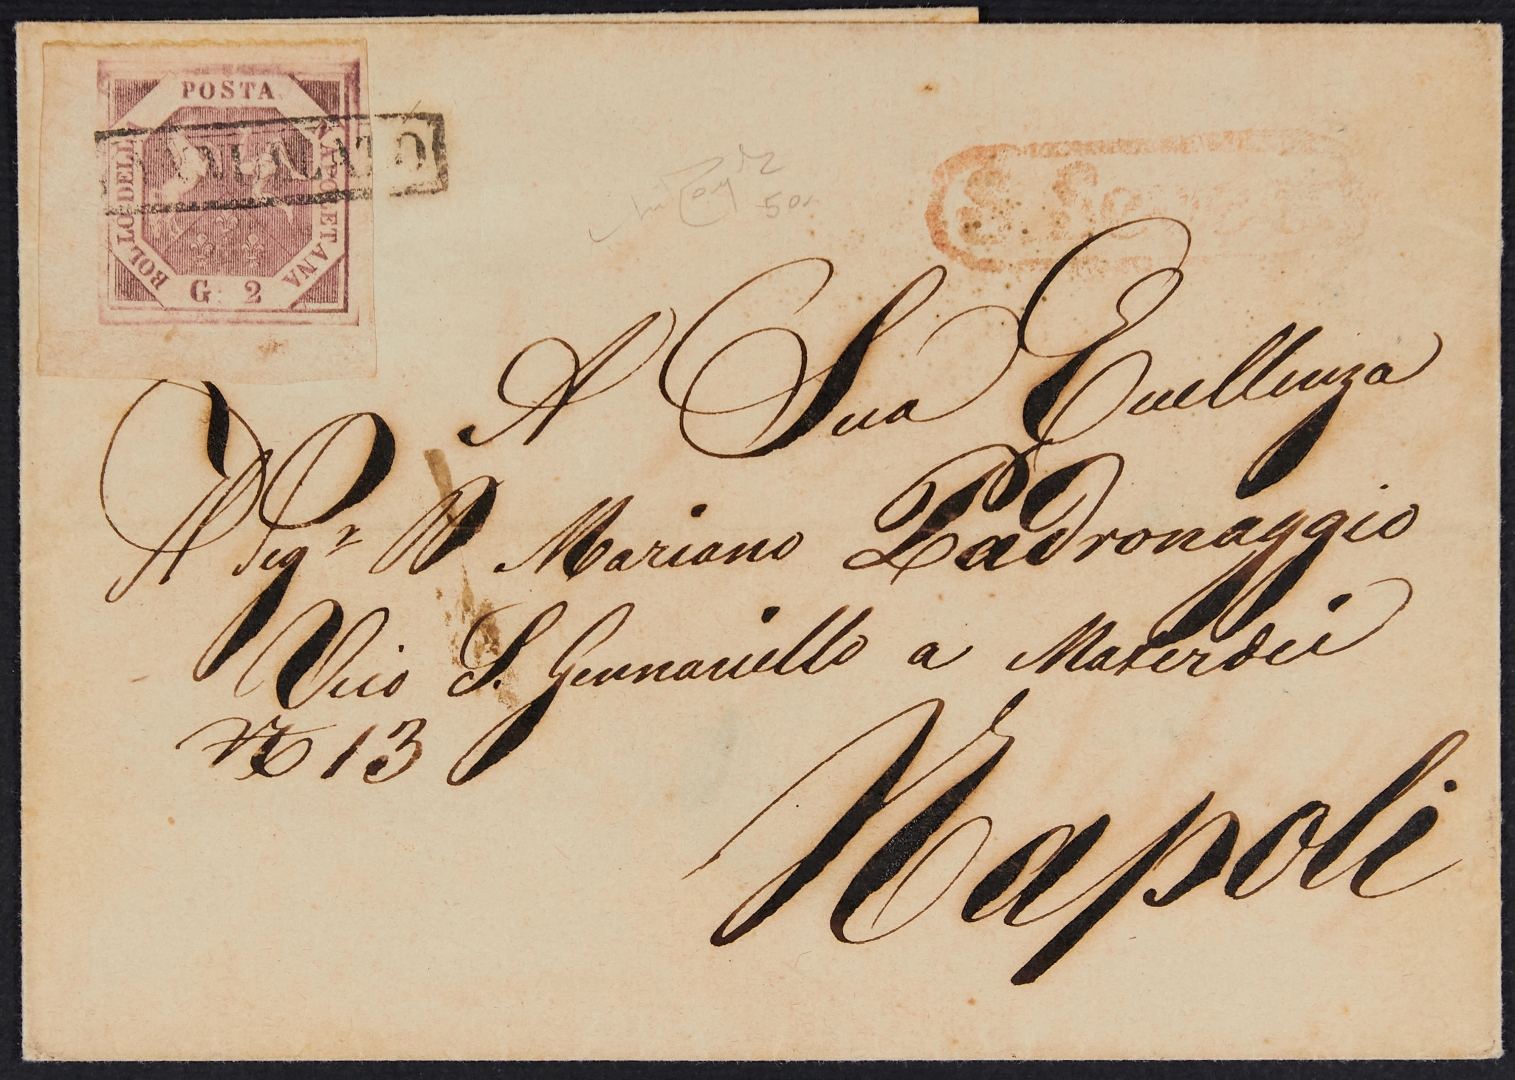 POSTA
NAPOLETANA
BOLLO DELLA
G 2
ANNULLATO
50
A Sua Eccellenza
Il Sigr D Mariano Padronaggio
Vico S. Gennariello a Materdei
No 13
Napoli